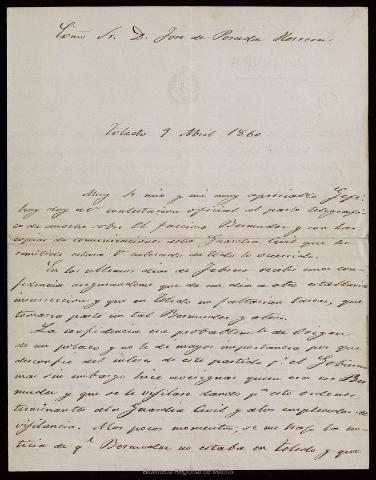 Exmo Sr. D. Jose de Posada Herrera
Toledo 9 Abril 1860
Muy Sr mio y mi muy apreciable Gefe:
hoy doy a V. contestacion oficial al parte telegrafi-
co de anoche sobre el faccioso Bermudez y con las
copias de comunicaciones de la Guardia Civil que he
remitido estara V. enterado de todo lo ocurrido.
En los ultimos dias de febrero recibi una con-
fidencia asegurandome que de un dia a otro estallaria
insurreccion y que en Toledo no faltarian que
tomara parte un tal Bermudez y otros.
La confidencia era probablemte de origen
de un y no le di mayor importancia por que
desconfio del de este partido pr el Gobierno
mas sin embargo hice averiguar quien era ese Ber-
mudez y que se le vigilase dando pa ello ordenes
terminantes a la Guardia Civil y a los empleados de
vigilancia. A los pocos momentos se me trajo la no-
ticia de qe Bermudez no estaba en Toledo y que
Biblioteca Regional de Madrid